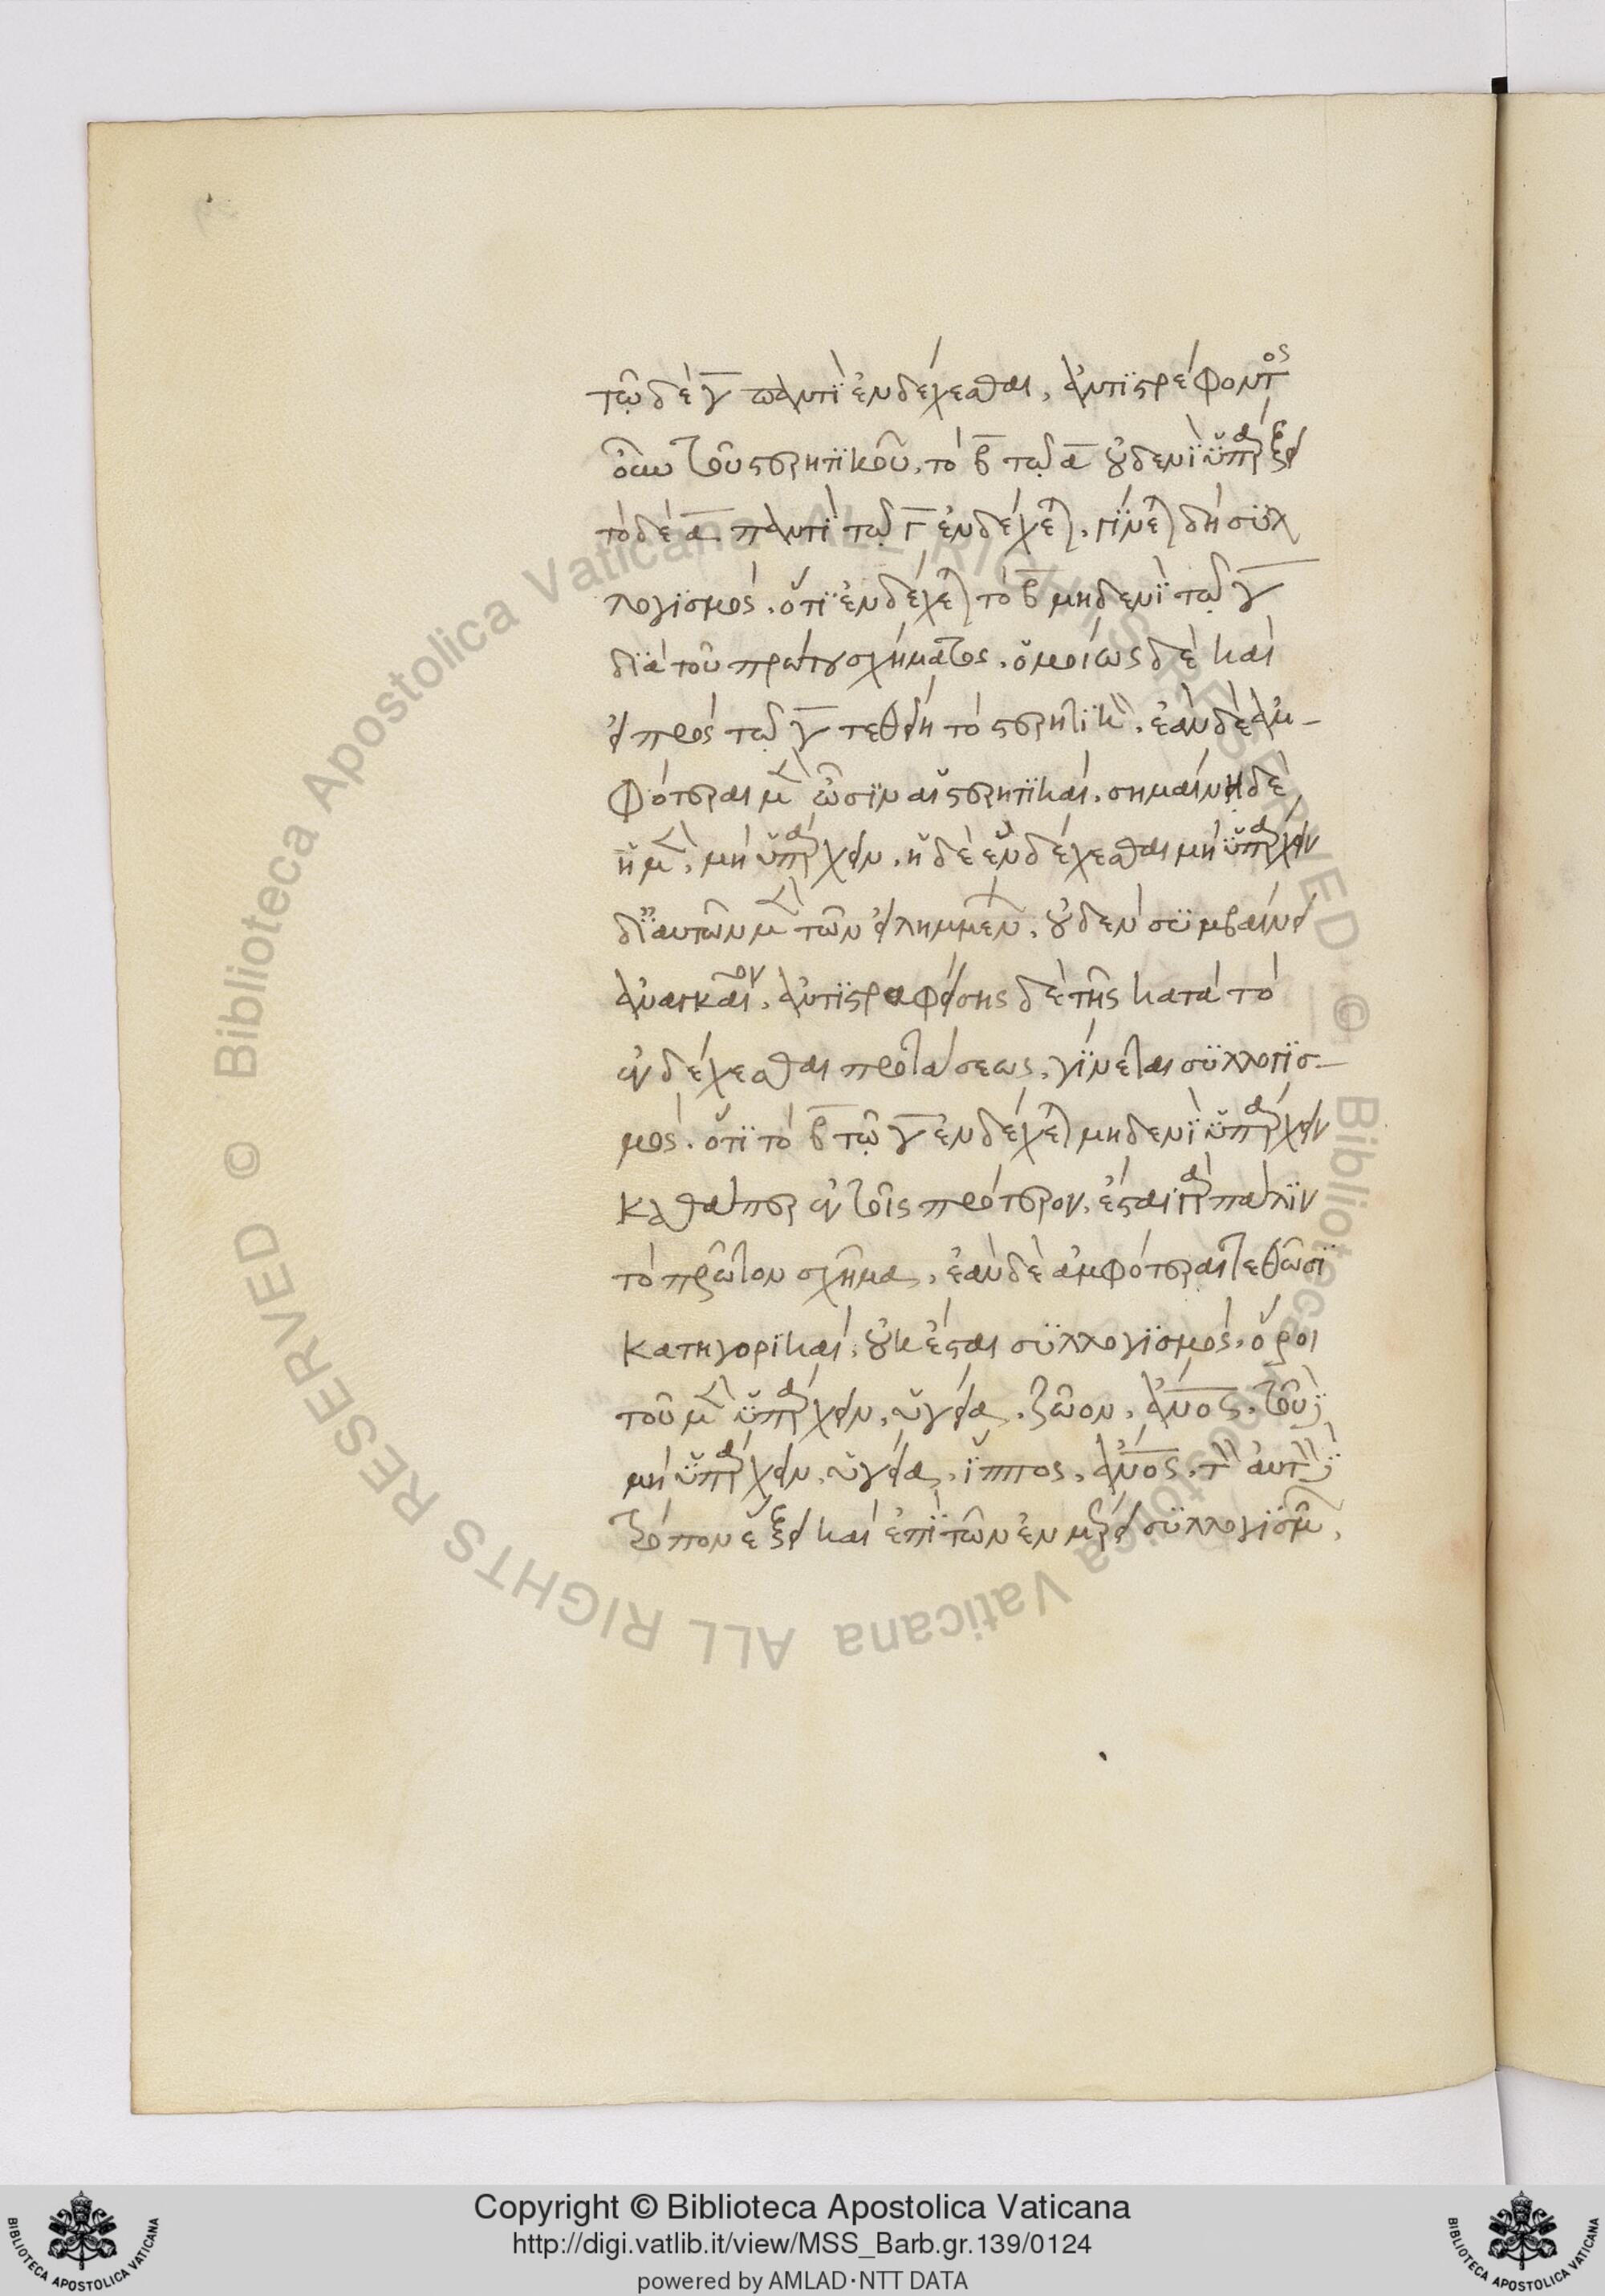 τῷ δὲ γ̅ παντὶ ἐνδέχεσθαι. ἀντιστρέφοντος
οὖν τοῦ στερητικοῦ, τὸ β̅ τῷ α̅ οὐδενὶ ὑπάρξει
τὸ δὲ α̅ παντὶ τῷ Γ̅ ἐνδέχεται. γίνεται δὴ συλ
λογισμός. ὅτι ἐνδέχεται τὸ β̅ μηδενὶ τῷ γ̅
διὰ τοῦ πρώτου σχήματος. ὁμοίως δὲ καὶ
εἰ πρὸς τῷ γ̅ τεθείη τὸ στερητικόν. ἐὰν δὲ ἀμ-
φότεραι μὲν ὦσιν αἱ στερητικαί. σημαίνῃ δὲ
ἡ μὲν, μὴ ὑπάρχειν. ἡ δὲ ἐνδέχεσθαι μὴ ὑπάρχειν
δι' αὐτῶν μὲν τῶν εἰλημμένων. οὐδὲν συμβαίνει
ἀναγκαῖον. ἀντιστραφείσης δὲ τῆς κατὰ τὸ
ἐνδέχεσθαι προτάσεως. γίνεται συλλογισ-
μός. ὅτι τὸ β̅ τῷ γ̅ ἐνδέχεται μηδενὶ ὑπάρχειν
καθάπερ ἐν τοῖς πρότερον. ἔσται γὰρ πάλιν
τὸ πρῶτον σχῆμα. ἐὰν δὲ ἀμφότεραι τεθῶσι
κατηγορικαί. οὐκ ἔσται συλλογισμός. ὅροι
τοῦ μὲν ὑπάρχειν. ὑγεία. ζῶον. ἄν̅ο̅ς̅. τοῦ
μὴ ὑπάρχειν. ὑγεία. ἵππος. ἄν̅ο̅ς̅. τὸν αὐτὸν
τρόπον ἕξει καὶ ἐπὶ τῶν ἐν μέρει συλλογισμῶν.
Copyright © Biblioteca Apostolica Vaticana
http://digi.vatlib.it/view/MSS_Barb.gr.139/0124
powered by AMLAD·NTT DATA
BIBLIOTECA APOSTOLICA VATICANA
BIBLIOTECA APOSTOLICA VATICANA
© Biblioteca Apostolica Vaticana ALL RIGHTS RESERVED © Biblioteca Apostolica Vaticana ALL RIGHTS RESERVED